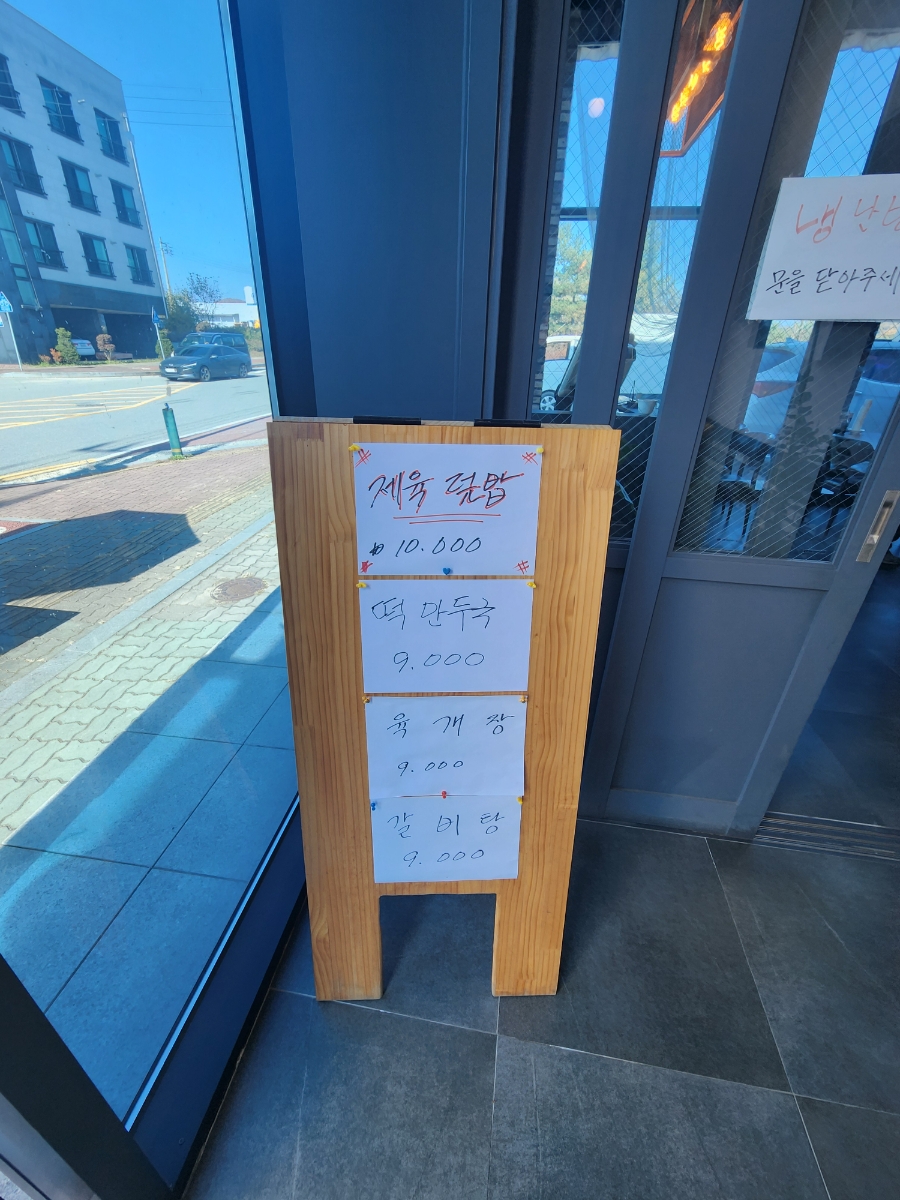 제육 덮밥
₩ 10.000
떡 만두국
9.000
육 개 장
9.000
갈 비 탕
9.000
냉 난
문을 닫아주세